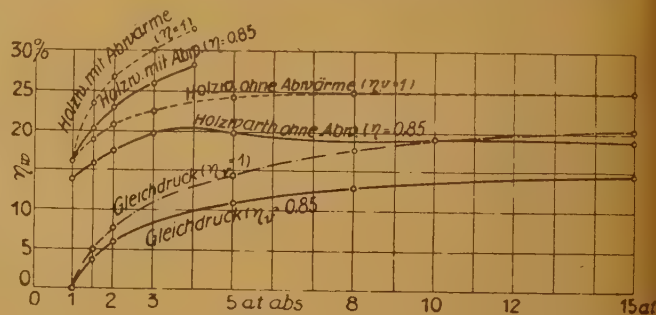 30%
25
20
15
10
5
0
η
Holzw. mit Abwärme
(η=1)
Holzw. mit Abw. (η=0.85
Holzw. ohne Abwärme (ηv=1)
Holzwarth ohne Abw. (η=0.85
Gleichdruck (ηv=1)
Gleichdruck (ηv=0.85
0 1 2 3 5 at abs 8 10 15 at